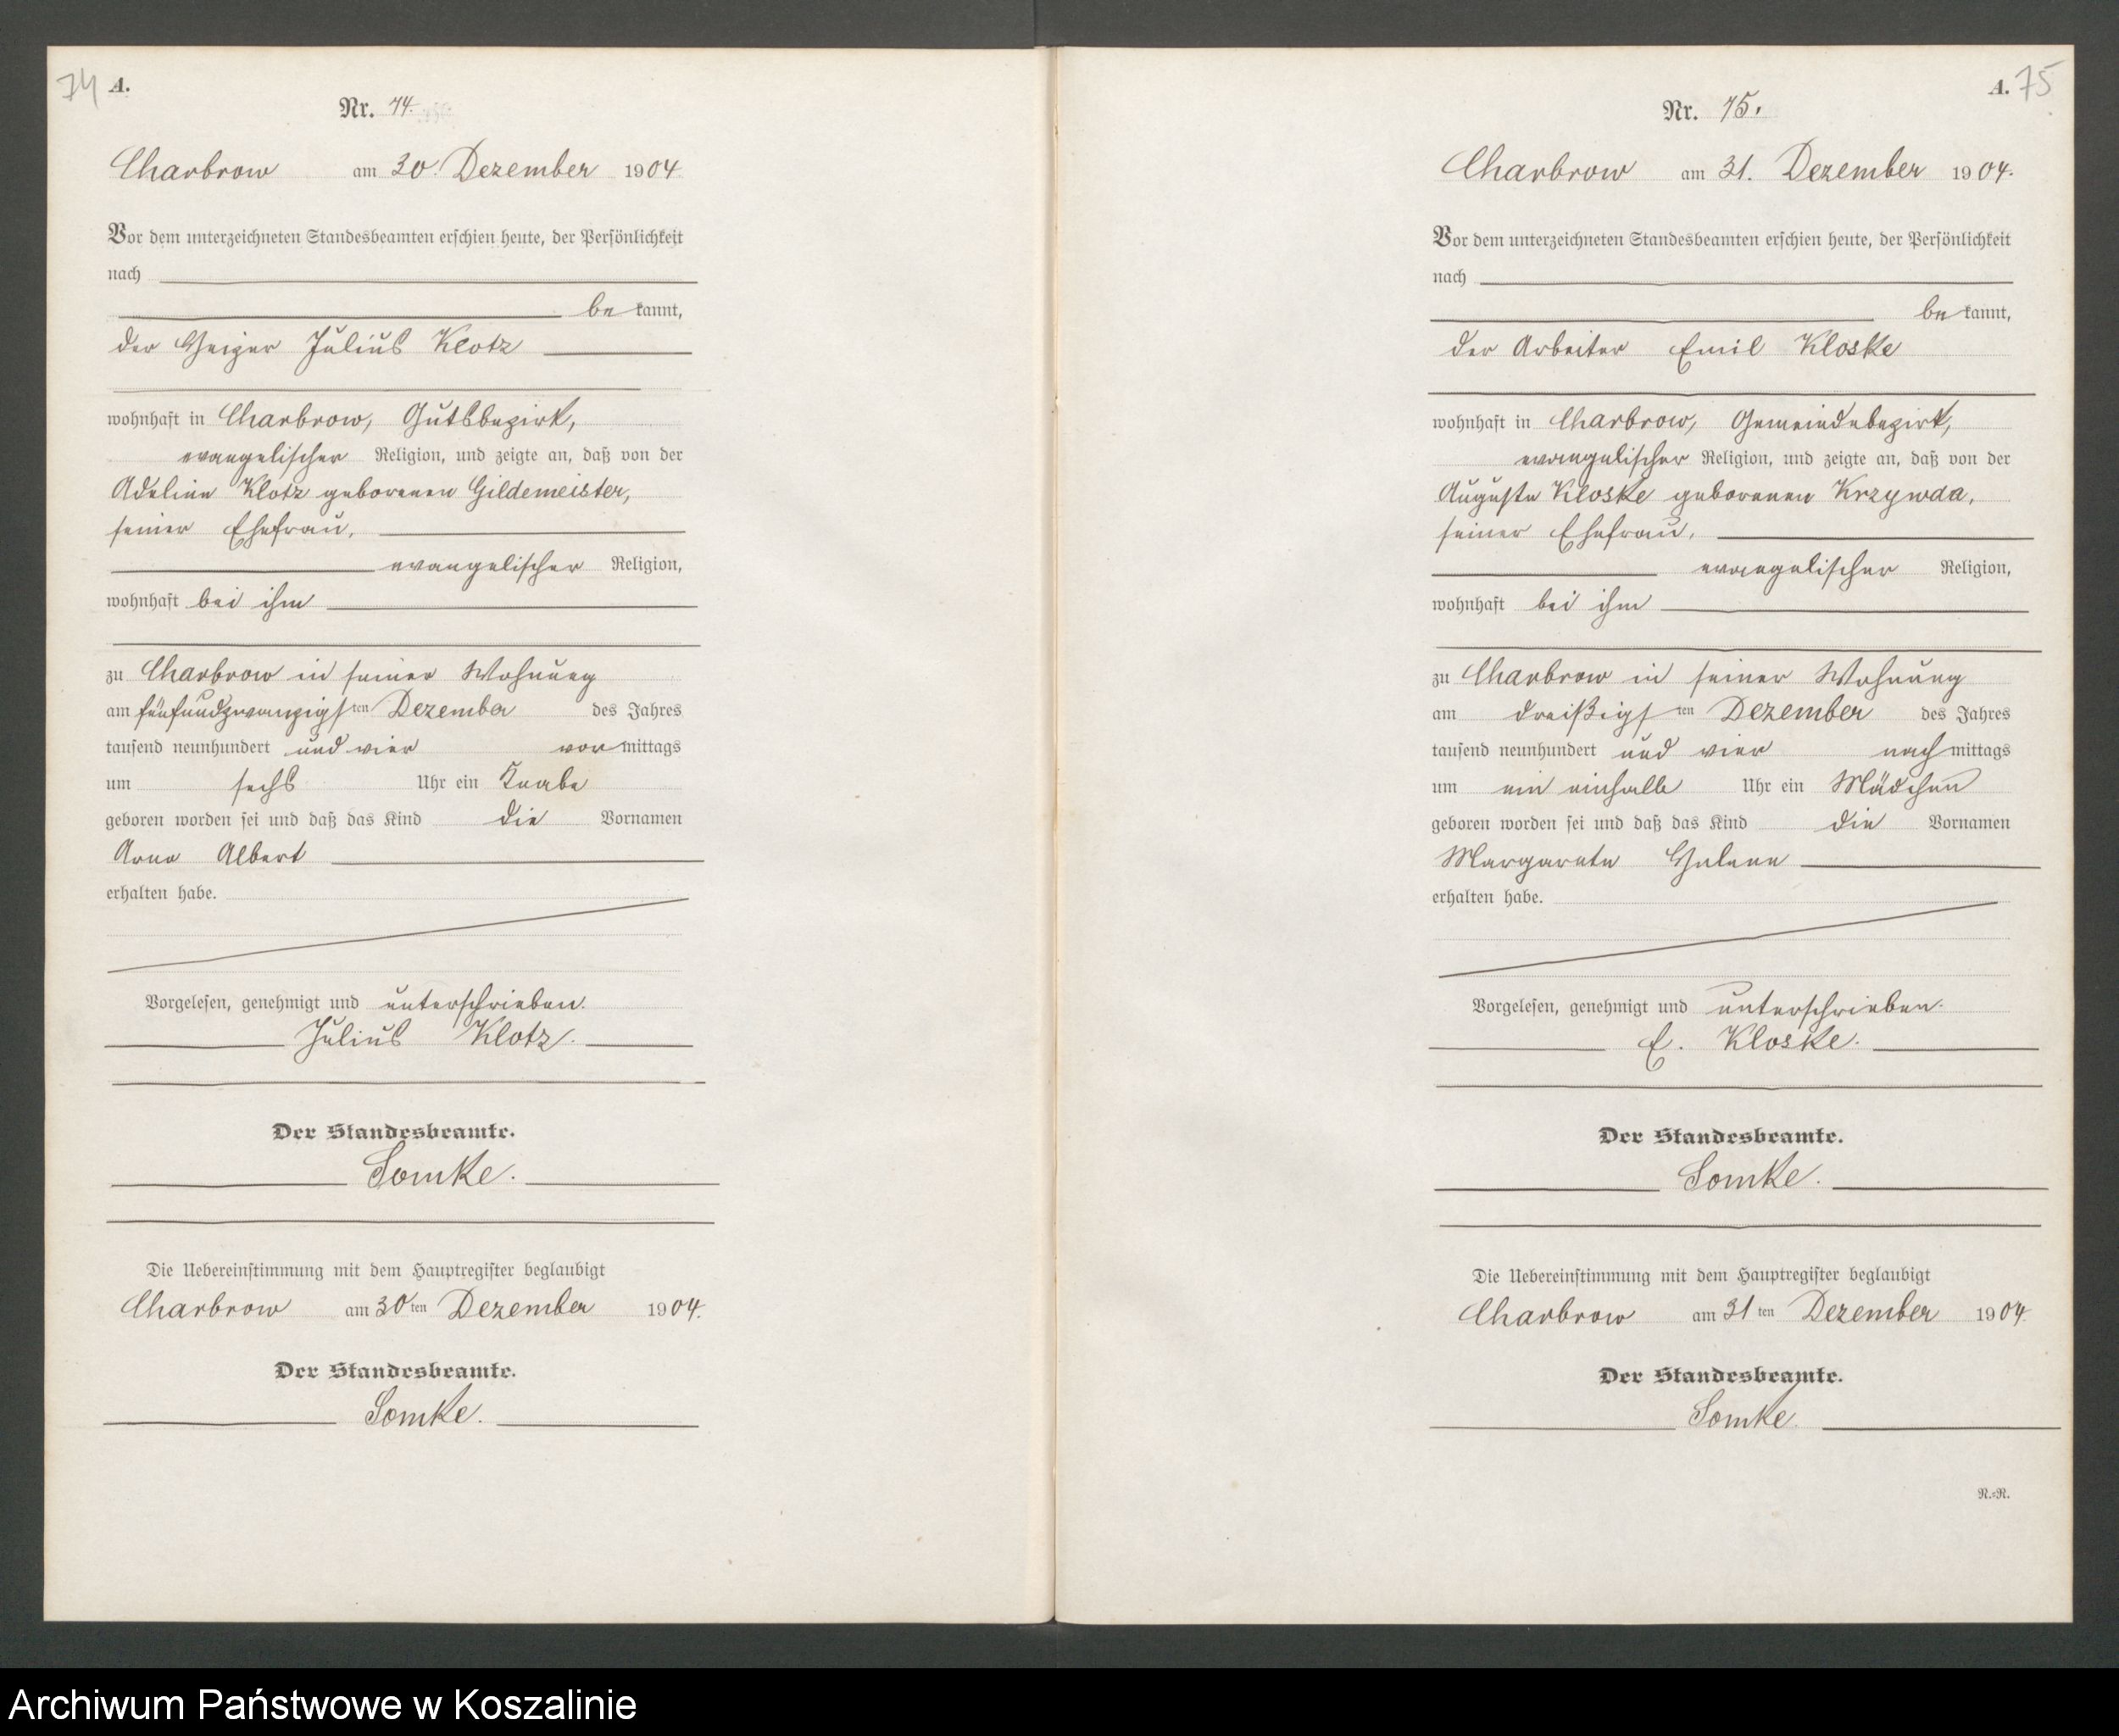 74 A.
Nr. 74.
Charbrow am 30. Dezember 1904
Vor dem unterzeichneten Standesbeamten erschien heute, der Persönlichkeit
nach
bekannt,
der Geiger Julius Klotz
wohnhaft in Charbrow, Gutsbezirk,
evangelischer Religion, und zeigte an, daß von der
Adeline Klotz geborenen Gildemeister,
seiner Ehefrau,
evangelischer Religion,
wohnhaft bei ihm
zu Charbrow in seiner Wohnung
am fünfundzwanzigsten Dezember des Jahres
tausend neunhundert und vier vormittags
um sechs Uhr ein Knabe
geboren worden sei und daß das Kind die Vornamen
Arno Albert
erhalten habe.
Vorgelesen, genehmigt und unterschrieben.
Julius Klotz.
Der Standesbeamte.
Somke.
Die Uebereinstimmung mit dem Hauptregister beglaubigt
Charbrow am 30ten Dezember 1904.
Der Standesbeamte.
Somke.
A. 75
Nr. 75.
Charbrow am 31. Dezember 1904.
Vor dem unterzeichneten Standesbeamten erschien heute, der Persönlichkeit
nach
bekannt,
der Arbeiter Emil Kloske
wohnhaft in Charbrow, Gemeindebezirk,
evangelischer Religion, und zeigte an, daß von der
Auguste Kloske geborenen Krzywda,
seiner Ehefrau,
evangelischer Religion,
wohnhaft bei ihm
zu Charbrow in seiner Wohnung
am dreißigsten Dezember des Jahres
tausend neunhundert und vier nachmittags
um ein einhalb Uhr ein Mädchen
geboren worden sei und daß das Kind die Vornamen
Margarete Helene
erhalten habe.
Vorgelesen, genehmigt und unterschrieben.
E. Kloske.
Der Standesbeamte.
Somke.
Die Uebereinstimmung mit dem Hauptregister beglaubigt
Charbrow am 31ten Dezember 1904.
Der Standesbeamte.
Somke.
R.=R.
Archiwum Państwowe w Koszalinie